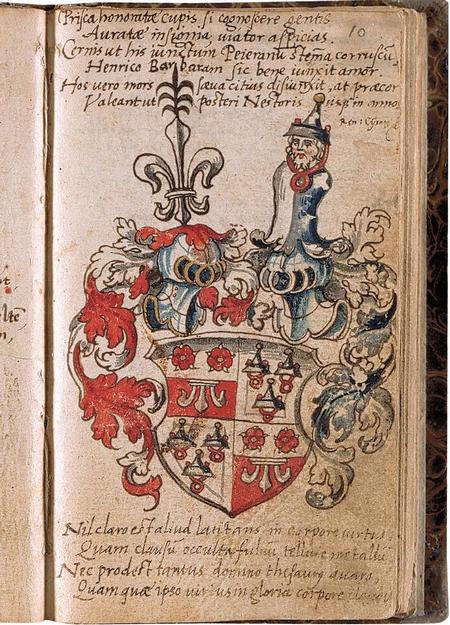 Prisca honoratæ cupis si cognoscere gentis
Auratæ insignia viator aspicias.
Cernis ut his iunctum Peieranum stema corruscū
Henrico Barbaram sic bene iunxit amor.
Hos vero mors sæva citius disiunxit, at præcor
Valeant ut posteri Nestoris in anno
10
Nil claro est aliud latitans in corpore virtus
Quam clausū occulta fulvū tellure metallū
Nec prodest tantus domino thesaurus avaro,
Quam quæ ipso virtus in gloria corpore